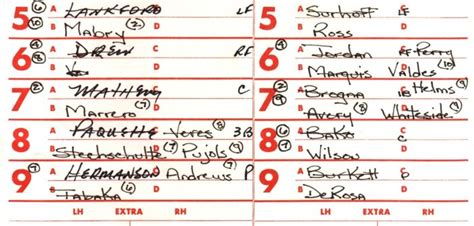 5 ⑥ A LANKFORD C LF
⑩ B Mabry D
6 ④ A DREW C RF
⑧ B D
7 ② A MATHENY C C
B Marrero ⑦ D
8 A PAQUETTE Veres ⑧ C 3B
B Stechschulte ⑦ Pujols ⑨ D
9 ⑦ A HERMANSON Andreus C P
B Tabaka ⑥ D
LH EXTRA RH
5 A Surhoff C LF
B Ross D
6 ④ A Jordan C RF Perry
B Marquis Valdes ⑩ D
7 ⑦ A Brogna C 1B Helms ⑨
⑨ B Avery ⑧ Whiteside ⑨ D
8 ⑥ A Bako C C
⑦ B Wilson D
9 ⑦ A Burkett C P
B DeRosa D
LH EXTRA RH